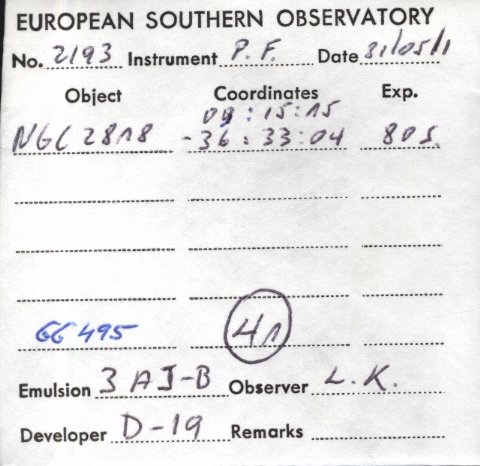 EUROPEAN SOUTHERN OBSERVATORY
No. 2193 Instrument P.F. Date 31/05/1
Object Coordinates Exp.
09:15:15
NGC 2818 -36:33:04 80s.
GG 495 41
Emulsion 3 AJ-B Observer L.K.
Developer D-19 Remarks